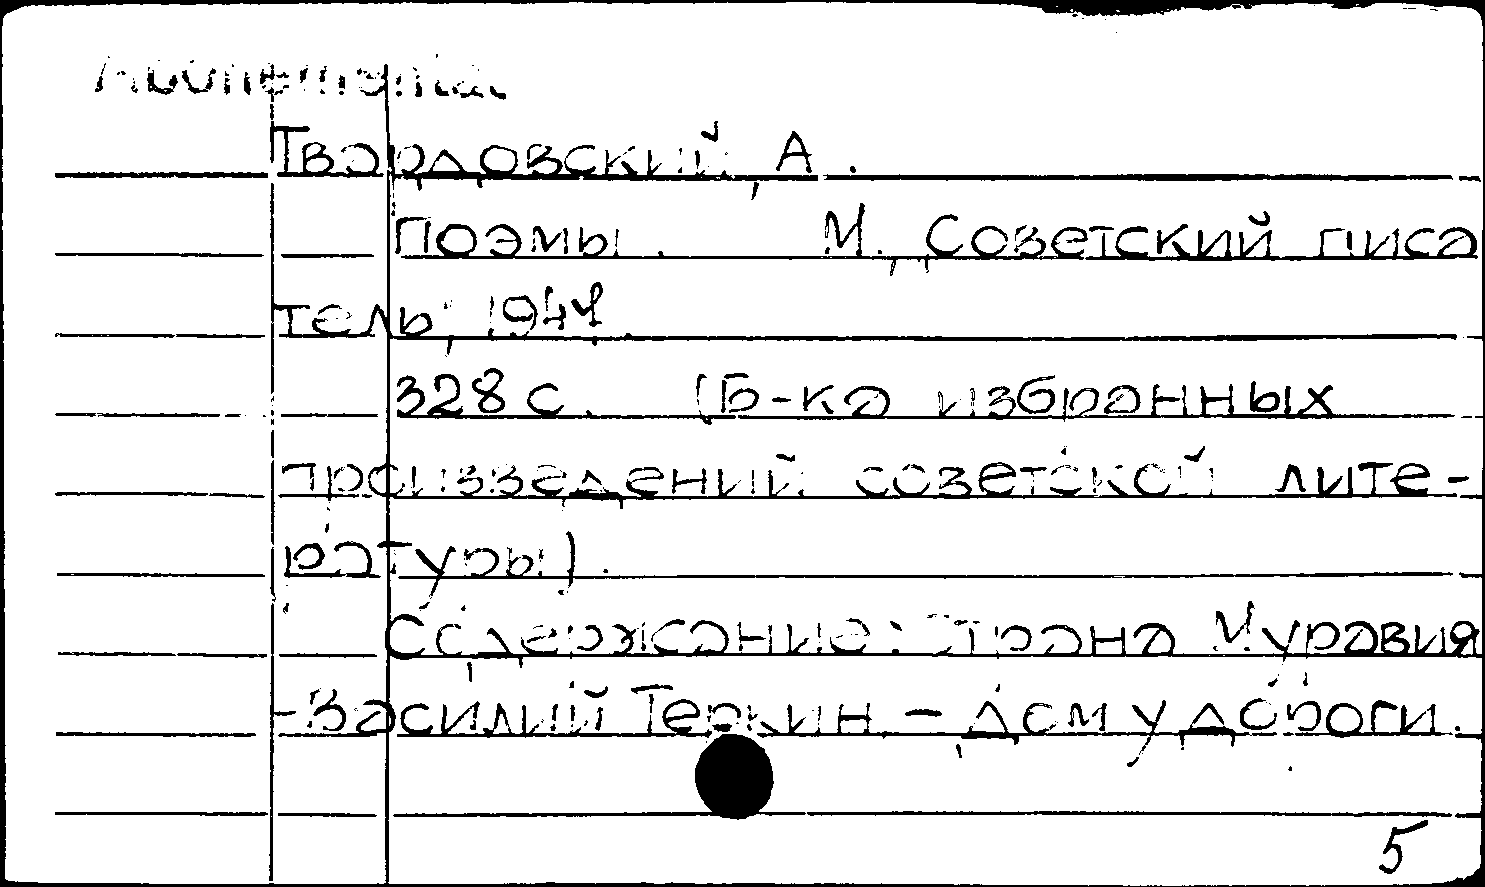 Abonementa
Твардовский, А.
Поэмы. М., Советский писа
тель, 1947.
328 с. (Б-ка избранных
произведений советской лите-
ратуры).
Содержание: Страна Муравия
-Василий Теркин. - Дом у дороги.
5